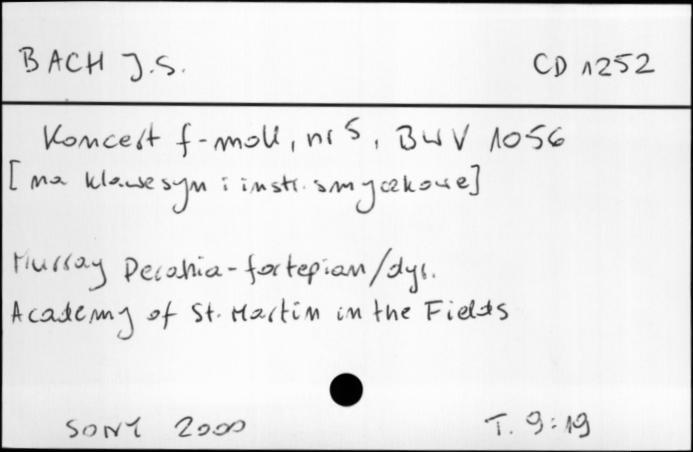 BACH J.S. CD 1252
Koncert f-moll, nr 5, BWV 1056
[na klawesyn i instr. smyczkowe]
Murray Perahia - fortepian/dyr.
Academy of St. Martin in the Fields
SONY 2000 T. 9:19